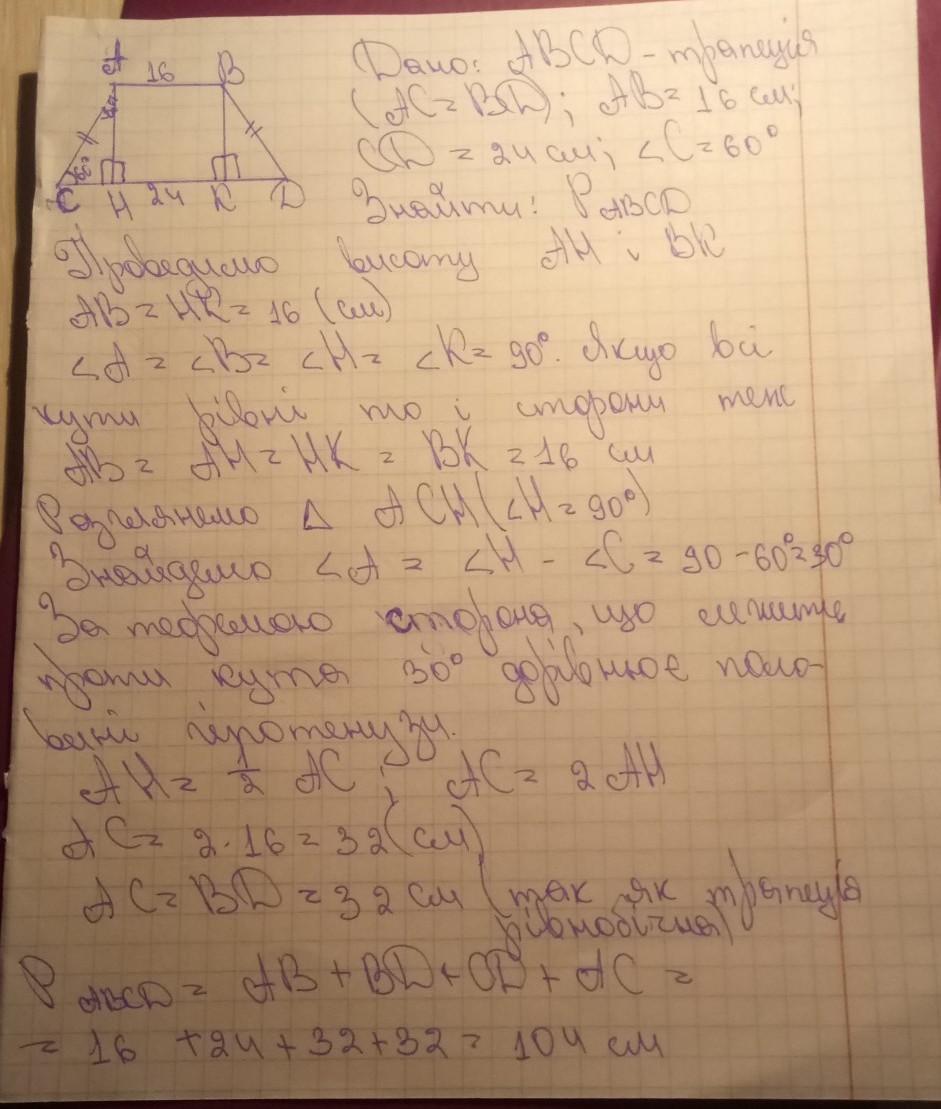 A 16 B
60°
C H 24 K D
Дано: ABCD - трапеція
(AC = BD); AB = 16 см;
CD = 24 см; ∠C = 60°
Знайти: P ABCD
Проведимо висоту AH і BK
AB = HK = 16 (см)
∠A = ∠B = ∠H = ∠K = 90°. Якщо всі
кути рівні то і сторони теж
AB = AH = HK = BK = 16 см
Розглянемо Δ ACH (∠H = 90°)
Знайдемо ∠A = ∠H - ∠C = 90 - 60° = 30°
За теоремою сторона, що лежить
проти кута 30° дорівнює поло-
вині гіпотенузи.
AH = 1/2 AC ; AC = 2 AH
AC = 2 · 16 = 32 (см)
AC = BD = 32 см (так як трапеція
рівнобічна)
P ABCD = AB + BD + CD + AC =
= 16 + 24 + 32 + 32 = 104 см